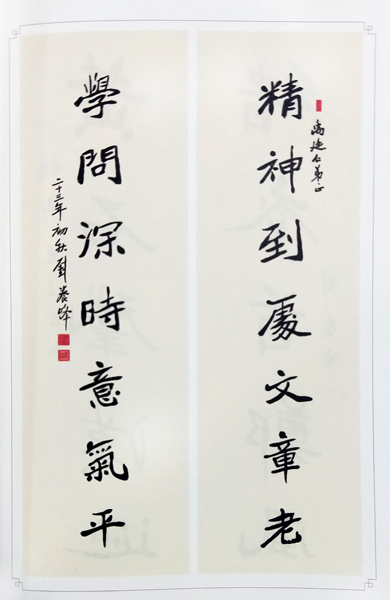 精神到處文章老
仁弟正
學問深時意氣平
二十三年初秋劉峰